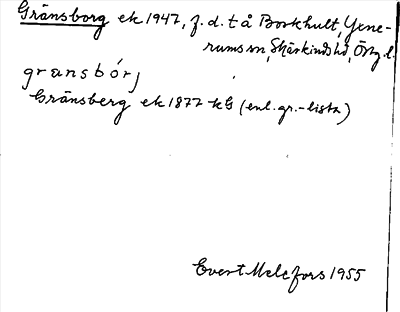 Gränsborg ek 1947, f.d. t å Borkhult, Yene-
rums sn, Skärkinds hd, Östg. l.
gransbórj
Gränsberg ek 1877 kG (enl. gr.-lista)
Evert Melefors 1955